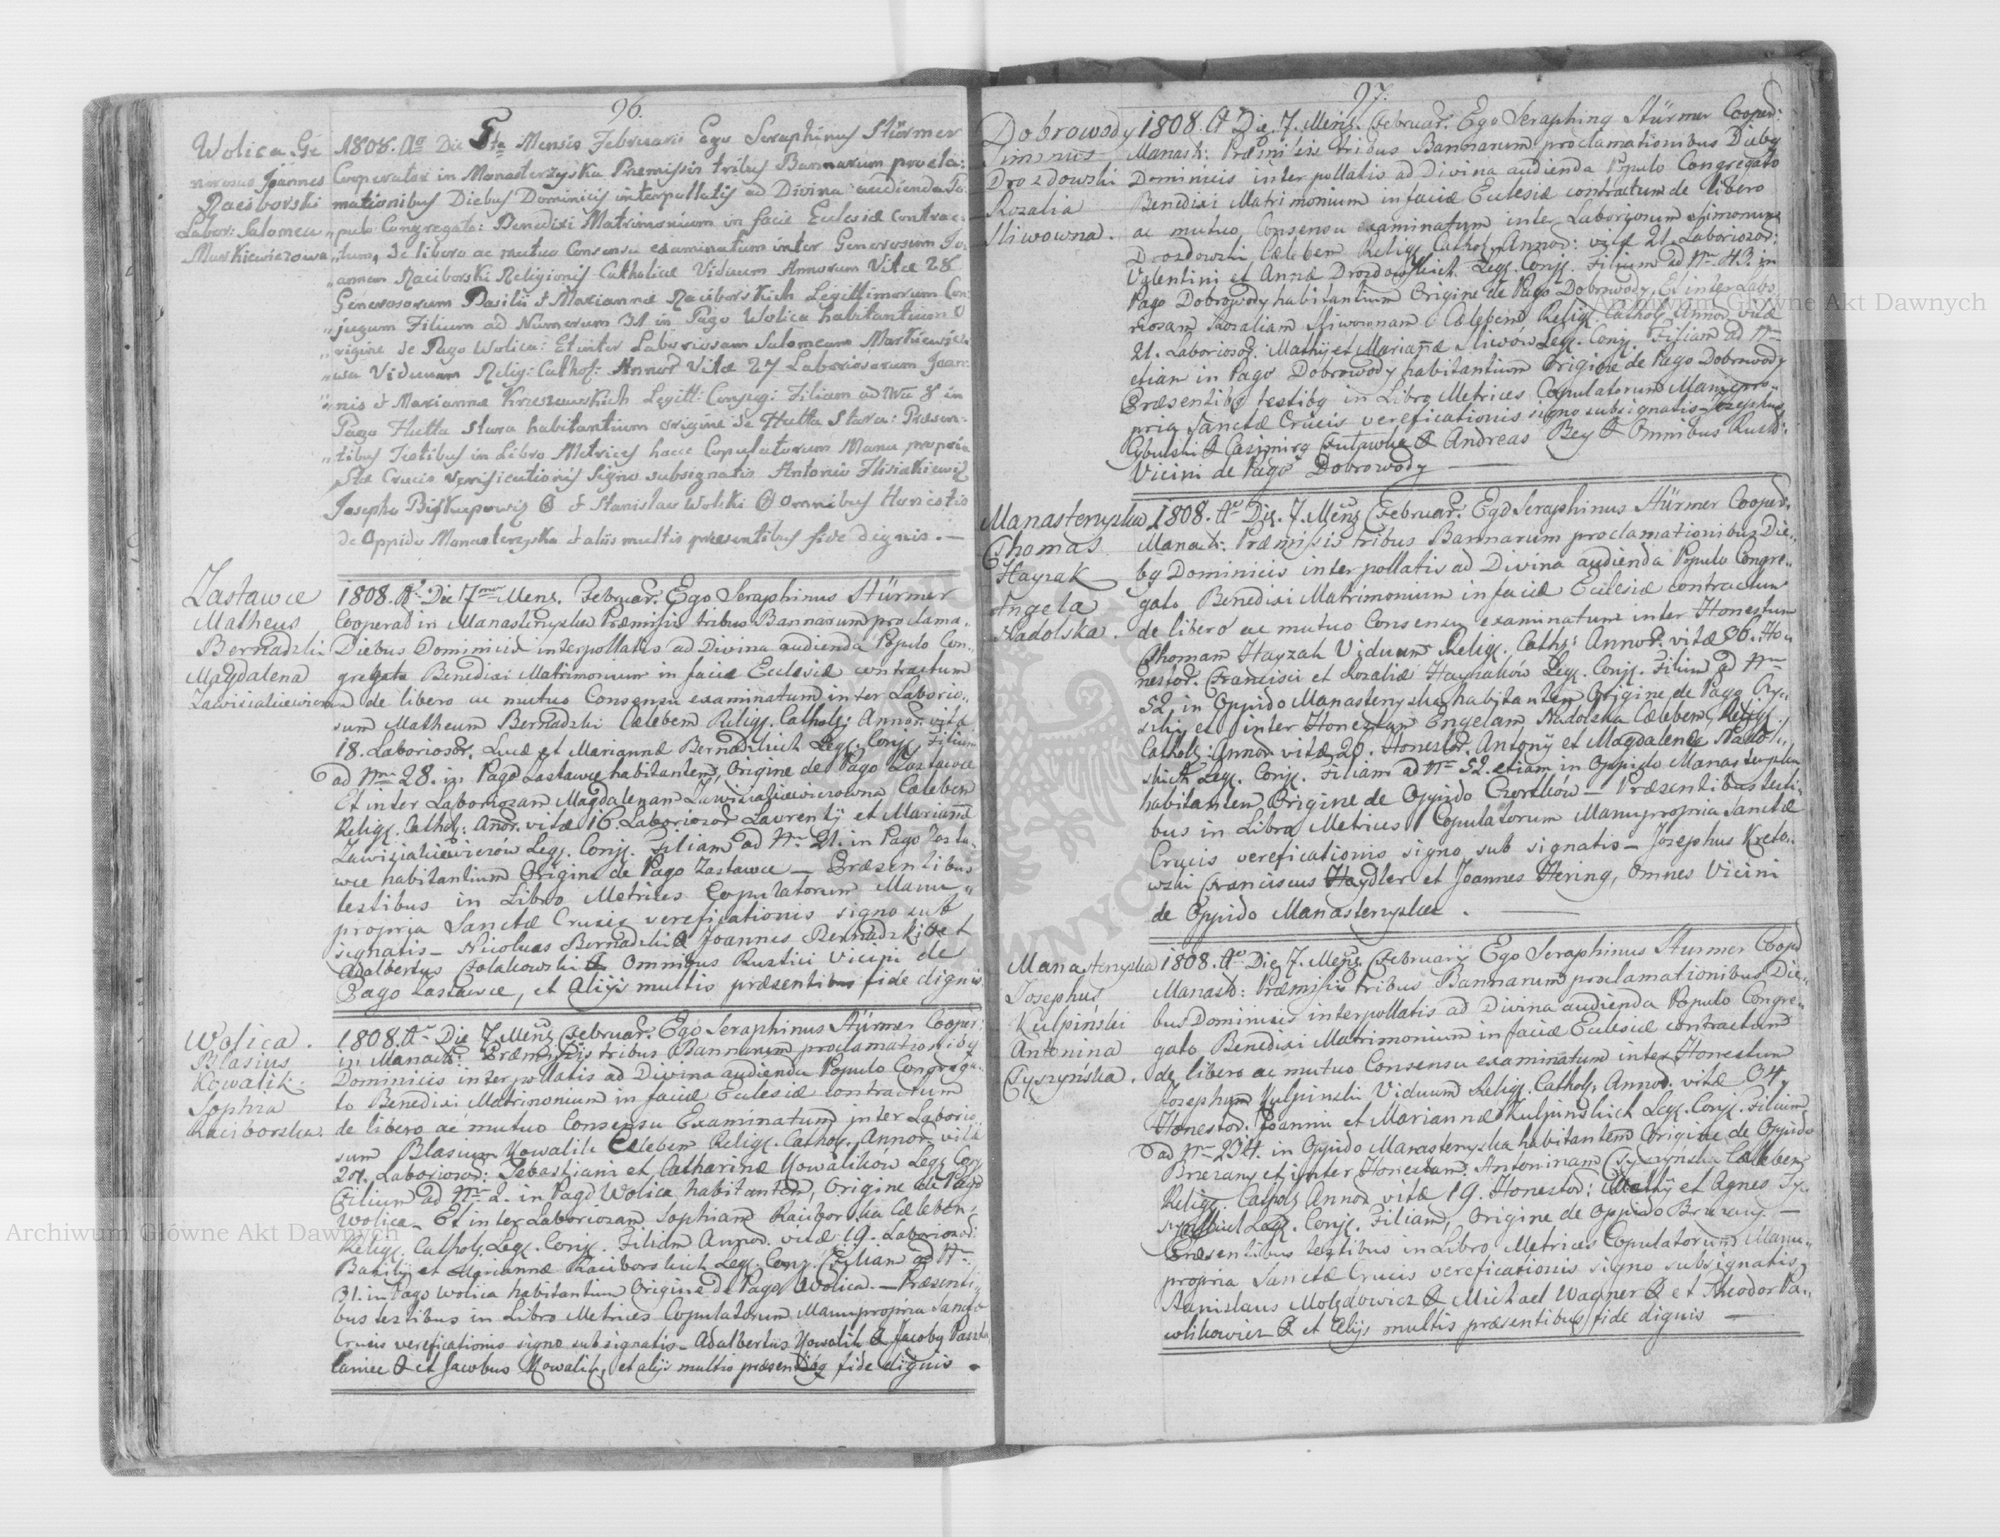 96.
Wolica. Ge
nerosus Joannes
Raciborski
Labor: Salomea
Markiewiczowa
1808. Ao Die 5ta Mensis Februarii Ego Seraphinus Stürmer
Cooperator in Monasterzyska Premissis tribus Bannarum procla:
mationibus Diebus Dominicis interpollatis ad Divina audienda Po
pulo Congregato: Benedixi Matrimonium in facie Eclesiæ contrac
tum, de libero ac mutuo Consensu examinatum inter Generosum Jo
annem Raciborski Religionis Catholicæ Viduum Annorum Vitæ 28
Generosorum Basilii et Mariannæ Raciborskich Legittimorum Con
jugum Filium ad Numerum 31 in Pago Wolica habitantium O
rigine de Pago Wolica: Et inter Laboriosam Salomeam Markiewic
wa Viduam Relig: Cathol: Annor Vitæ 27 Laboriosorum Joan
nis et Mariannæ Krzeszewskich Legitt: Conjug: Filiam ad Nru 8 in
Pago Hutta Stara habitantium origine de Hutta Stara: Præsen
tibus Testibus in Libro Metrices hacce Copulatorum Manu propria
Stæ Crucis verificationis Signo subsignatis Antonio
Josepho Biskupowiz et Stanislao Wolski omnibus Honestis
de Oppido Monasterzyska et aliis multis presentibus fide dignis.
Zastawce
Matheus
Bernadzki
Magdalena
1808. Ao Die 7mo Mens. Februar. Ego Seraphinus Stürmer
Cooperat in Manasterzyska Præmissis tribus Bannarum proclama
Diebus Dominicis interpollatis ad Divina audienda Populo Con
gregato Benedixi Matrimonium in faciæ Eclesiæ contractum
de libero ac mutuo Consensu examinatum inter Laborio
sum Matheum Bernadzki Cælebem Relig. Cathol: Annor. vitæ
18. Laboriosor. Lucæ et Mariannæ Bernadzkich Leg. Conj. Filium
ad Nrm 28. in Pago Zastawce habitantem, Origine de Pago Zastawce
Et inter Laboriosam Magdalenam Cælebem
Relig. Cathol: Anor. vitæ 16 Laboriosor Laurentij et Mariannæ
Leg. Conj. Filiam ad Nr. 21. in Pago Zasta
wce habitantium Origine de Pago Zastawce — Præsentibus
testibus in Libro Metrices Copulatorum Manu
propria Sanctæ Crucis vereficationis signo sub
signatis — Nicolaus Bernadzki et Joannes Bernadzki et
Adalbertus Omnibus Rustici Vicini de
Pago Zastawce, et Alijs multis præsentibus fide dignis
Wolica.
Blasius
Kowalik:
Sophia
Raciborska.
1808. Ao Die 7 Mens Februar. Ego Seraphinus Stürmer Cooper:
in Manast: Præmissis tribus Bannarum proclamationiby
Dominicis interpollatis ad Divina audienda Populo Congrega
to Benedixi Matrimonium in faciæ Eclesiæ contractum
de libero ac mutuo Consensu Examinatum inter Laborio
sum Blasium Kowalik Cælebem Relig. Cathol. Annor. vitæ
Laboriosor: Sebastiani et Catharinæ Kowalików Leg. Conj
Filium ad Nr. 2. in Pago Wolica habitantem, Origine de Pago
Wolica — Et inter Laboriosam Sophiam Raciborska Cælebem
Relig. Cathol. Leg. Conj. Filiam Annor. vitæ 19. Laboriosor:
Basilij et Mariannæ Raciborskich Leg. Conj. Filiam ad Nr.
31. in Pago Wolica habitantium Origine de Pago Wolica. — Præsenti
bus testibus in Libro Metrices Copulatorum Manupropria Sanctæ
Crucis vereficationis signo subsignatis — Adalbertus Kowalik et Jacoby
et Jacobus Kowalik, et alijs multis præsentiby fide dignis.
97.
Dobrowody
Simonus
Drozdowski
Rozalia
Sliwowna.
1808. Ao Die. 7. Mens. Februar. Ego Seraphing Stürmer Cooper:
Manast: Præmissis tribus Bannarum proclamationibus Dieby
Dominicis interpollatis ad Divina audienda Populo Congregato
Benedixi Matrimonium in faciæ Eclesiæ contractum de libero
ac mutuo Consensu examinatum inter Laboriosum Simonum
Drozdowski Cælebem Relig. Cathol. Annor: vitæ 21. Laboriosor:
Valentini et Annæ Drozdowskich Leg. Conj. Filium ad Nr. 43. in
Pago Dobrowody habitantium Origine de Pago Dobrowody, Et inter Labo
riosam Rozaliam Sliwownam Cælebem Relig. Cathol. Annor. vitæ
21. Laboriosor: Mathij et Mariannæ Sliwów Leg. Conj. Filiam ad Nr
etiam in Pago Dobrowody habitantium Origine de Pago Dobrowody
Præsentiby testiby in Libro Metrices Copulatorum Manupro
pria Sanctæ Crucis vereficationis signo subsignatis Josephus
Cybulski et Casimirg et Andreas Bey et Omnibus Rusti:
Vicini de Pago Dobrowody —
Manasterzyska
Thomas
Hayzak
Angela
Nadolska.
1808. Ao Die. 7. Mens Februar. Ego Seraphinus Stürmer Cooper.
Manast: Præmissis tribus Bannarum proclamationibus Die
by Dominicis interpollatis ad Divina audienda Populo Congre
gato Benedixi Matrimonium in faciæ Eclesiæ contractum
de libero ac mutuo Consensu examinatum inter Honestum
Thomam Hayzak Viduum Relig. Cath: Annor. vitæ 36. Ho
nestor. Francisci et Rozaliæ Hayzaków Leg. Conj. Filium ad Nrm
52 in Oppido Manasterzyska habitantem Origine de Pago
et inter Honestam Engelam Nadolska Cælebem Relig.
Cathol: Annor vitæ 20. Honestor. Antonij et Magdalenæ Nadol
skich Leg. Conj. Filiam ad Nrm 52. etiam in Oppido Manasterzyska
habitantem Origine de Oppido Czortków — Præsentibus testi
bus in Libro Metrices Copulatorum Manupropria Sanctæ
Crucis vereficationis signo sub signatis — Josephus Kreto
wski Franciscus Haydler et Joannes Hering, Omnes Vicini
de Oppido Manasterzyska. —
Manasterzyska
Josephus
Kulpiński
Antonina
Tyszyńska.
1808. Ao Die 7. Mens. Februarij Ego Seraphinus Sturmer Coop
Manast: Præmissis tribus Bannarum proclamationibus Die
bus Dominicis interpollatis ad Divina audienda Populo Congre
gato Benedixi Matrimonium in faciæ Eclesiæ contractum
de libero ac mutuo Consensu examinatum inter Honestum
Josephum Kulpinski Viduum Relig. Cathol. Annor. vitæ 34.
Honestor. Joannis et Mariannæ Kulpinskich Leg. Conj. Filium
ad Nrm 234. in Oppido Manasterzyska habitantem Origine de Oppido
Brzezany et inter Honestam Antoninam Tyszynska Cælebem
Relig. Cathol. Annor vitæ 19. Honestor: Mathij et Agnes Ty
Leg. Conj. Filiam, Origine de Oppido Brzezany —
Præsentibus testibus in Libro Metrices Copulatorum Manu
propria Sanctæ Crucis vereficationis signo subsignatis,
Stanislaus Molędowicz et Michael Wagner et Theodor Pa
wlikowicz et Alijs multis præsentibus fide dignis —
Archiwum Główne Akt Dawnych
Archiwum Główne Akt Dawnych